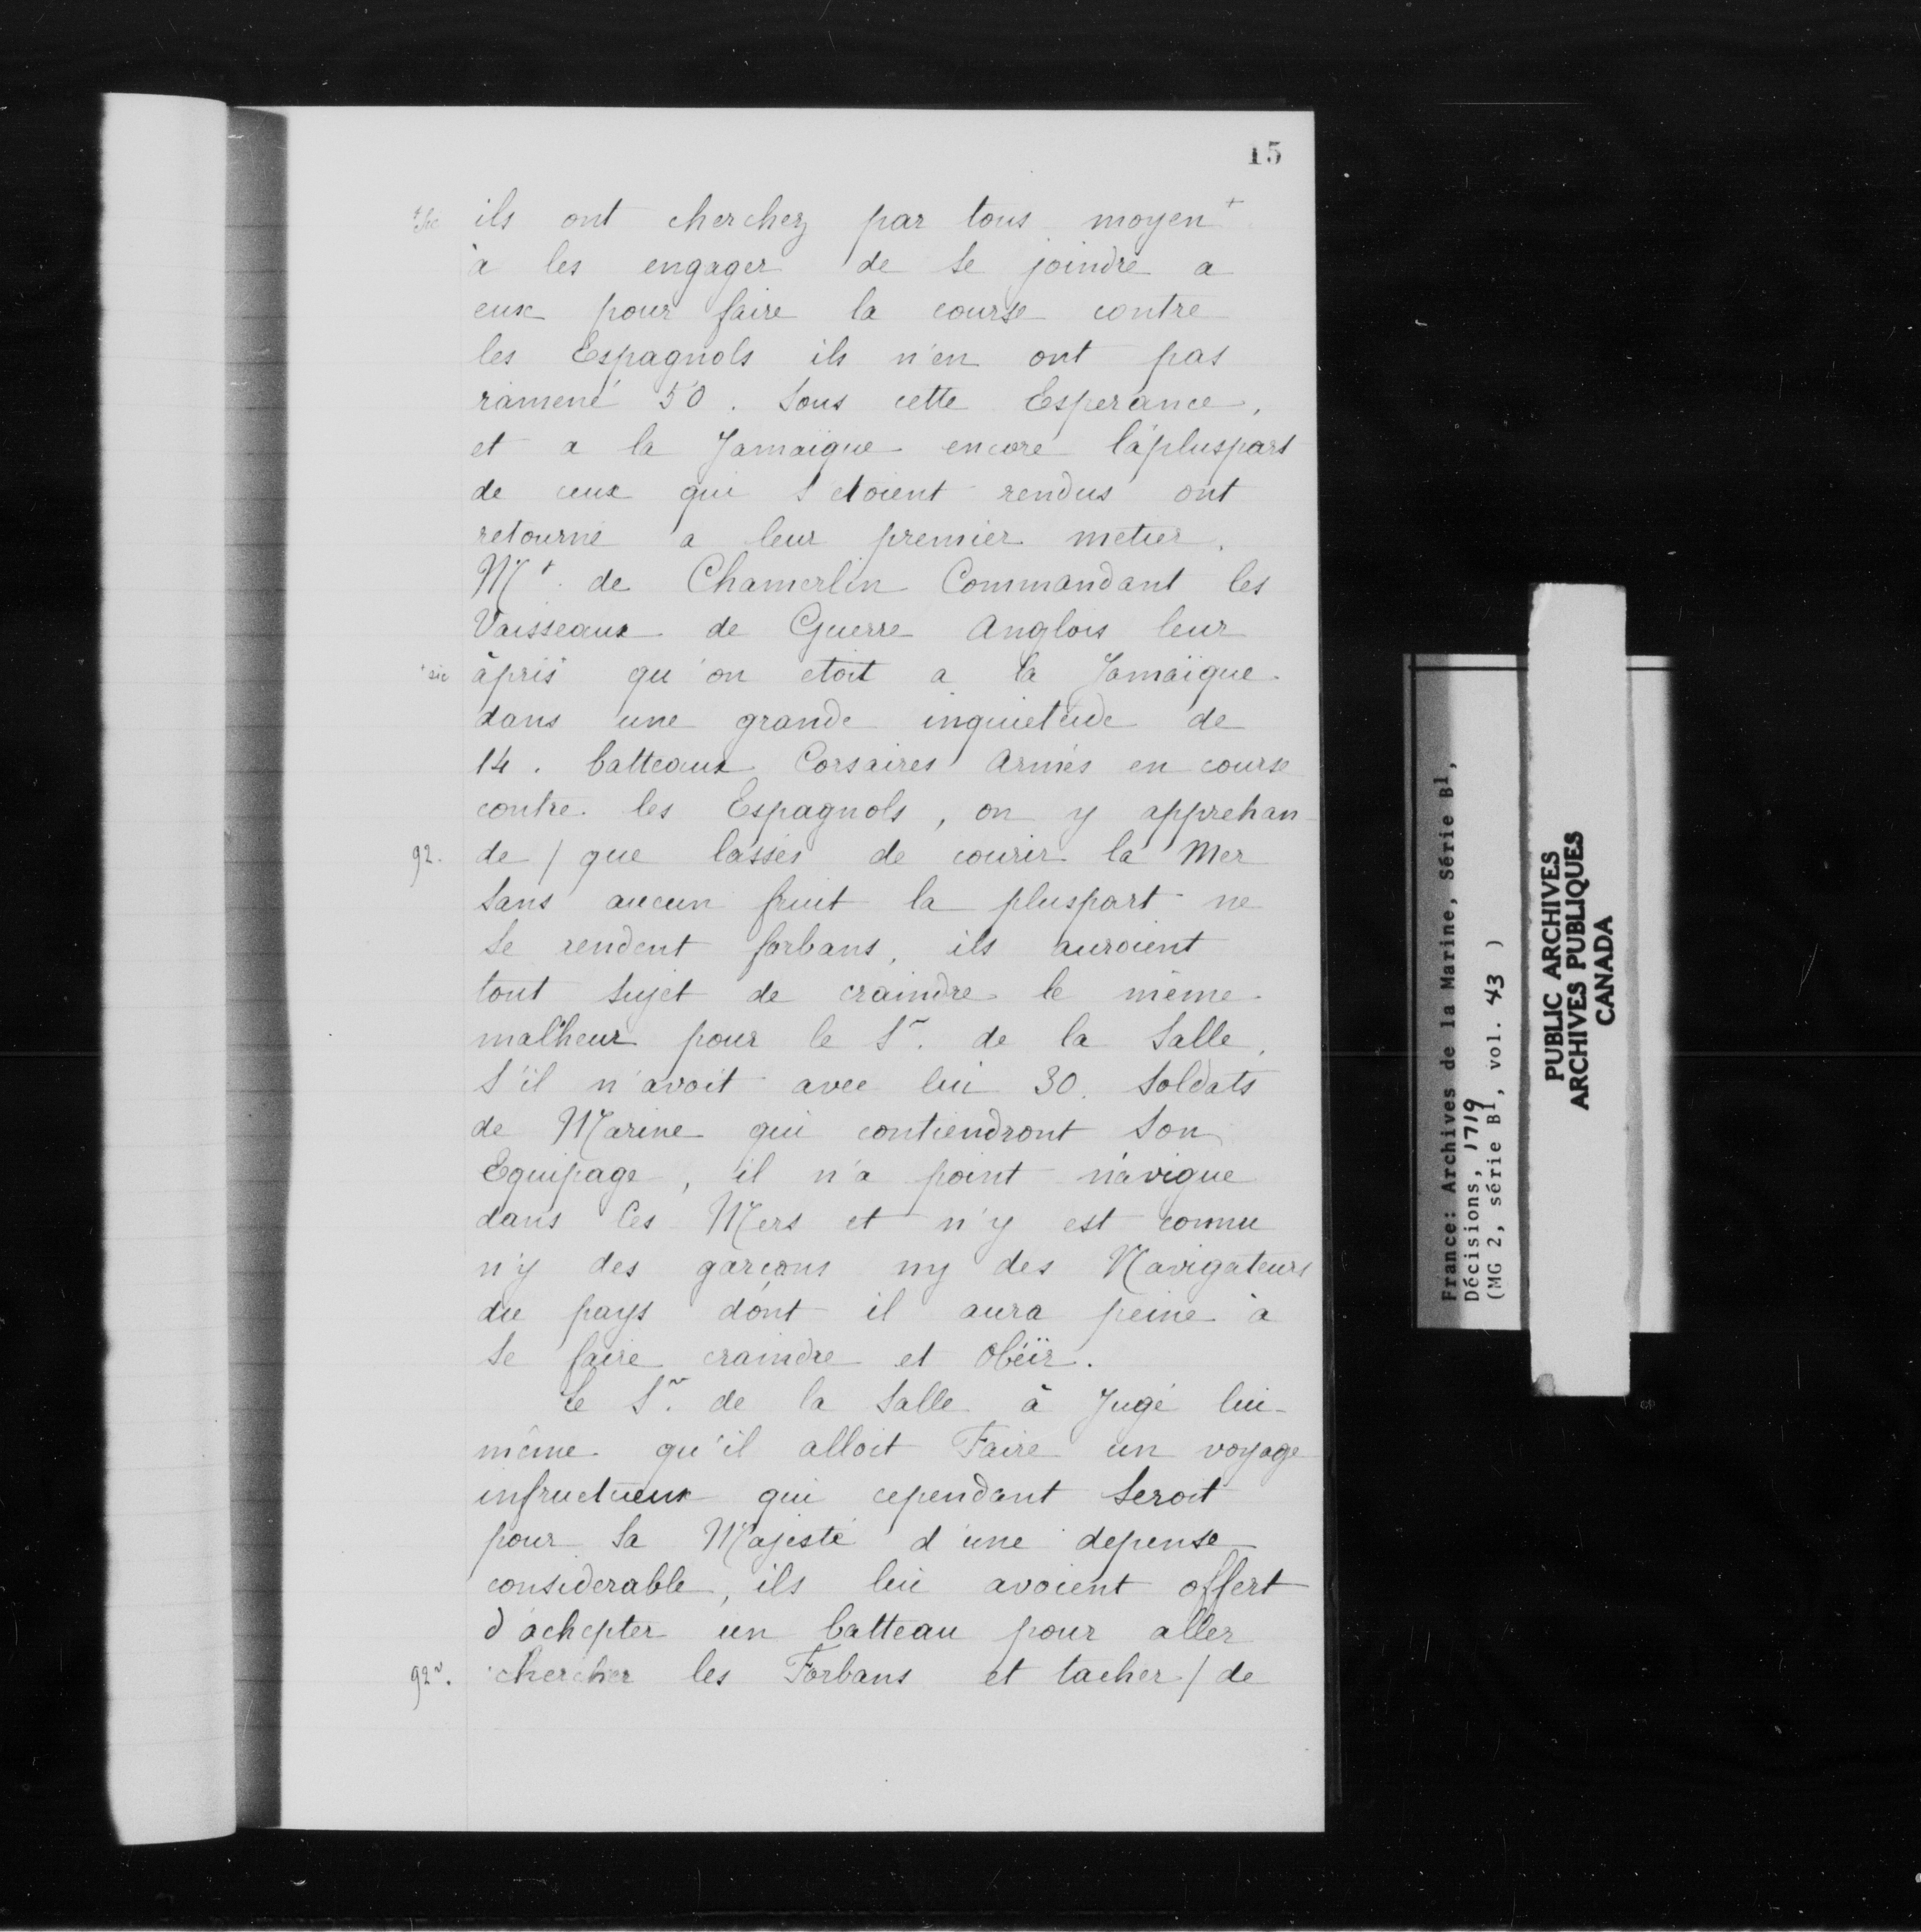 15
+sic ils ont cherchez par tous moyen+
à les engager de se joindre a
eux pour faire la course contre
les Espagnols ils n'en ont pas
ramené 50. sous cette Esperance,
et a la Jamaïque encore la pluspart
de ceux qui s'etoient rendus ont
retourné a leur premier metier.
M+. de Chamerlin Commandant les
Vaisseaux de Guerre Anglois leur
+sic àpris+ qu'on etoit a la Jamaïque
dans une grande inquietude de
14. batteaux Corsaires Armés en course
contre les Espagnols, on y apprehan-
92. de / que lassés de courir la Mer
sans aucun fruit la pluspart ne
se rendent forbans, ils auroient
tout sujet de craindre le même
malheur pour le Sr. de la Salle,
s'il n'avoit avec lui 30. soldats
de Marine qui contiendront son
Equipage, il n'a point navigué
dans ces Mers et n'y est connu
n'y des garçons ny des Navigateurs
du pays dont il aura peine à
se faire craindre et obéïr.
Le Sr. de la Salle à Jugé lui-
même qu'il alloit Faire un voyage
infructueux qui cependant seroit
pour sa Majesté d'une depense
considerable, ils lui avoient offert
d'achepter un batteau pour aller
92v. chercher les Forbans et tacher / de
France: Archives de la Marine, Série B1,
Décisions, 1719
(MG 2, série B1, vol. 43 )
PUBLIC ARCHIVES
ARCHIVES PUBLIQUES
CANADA